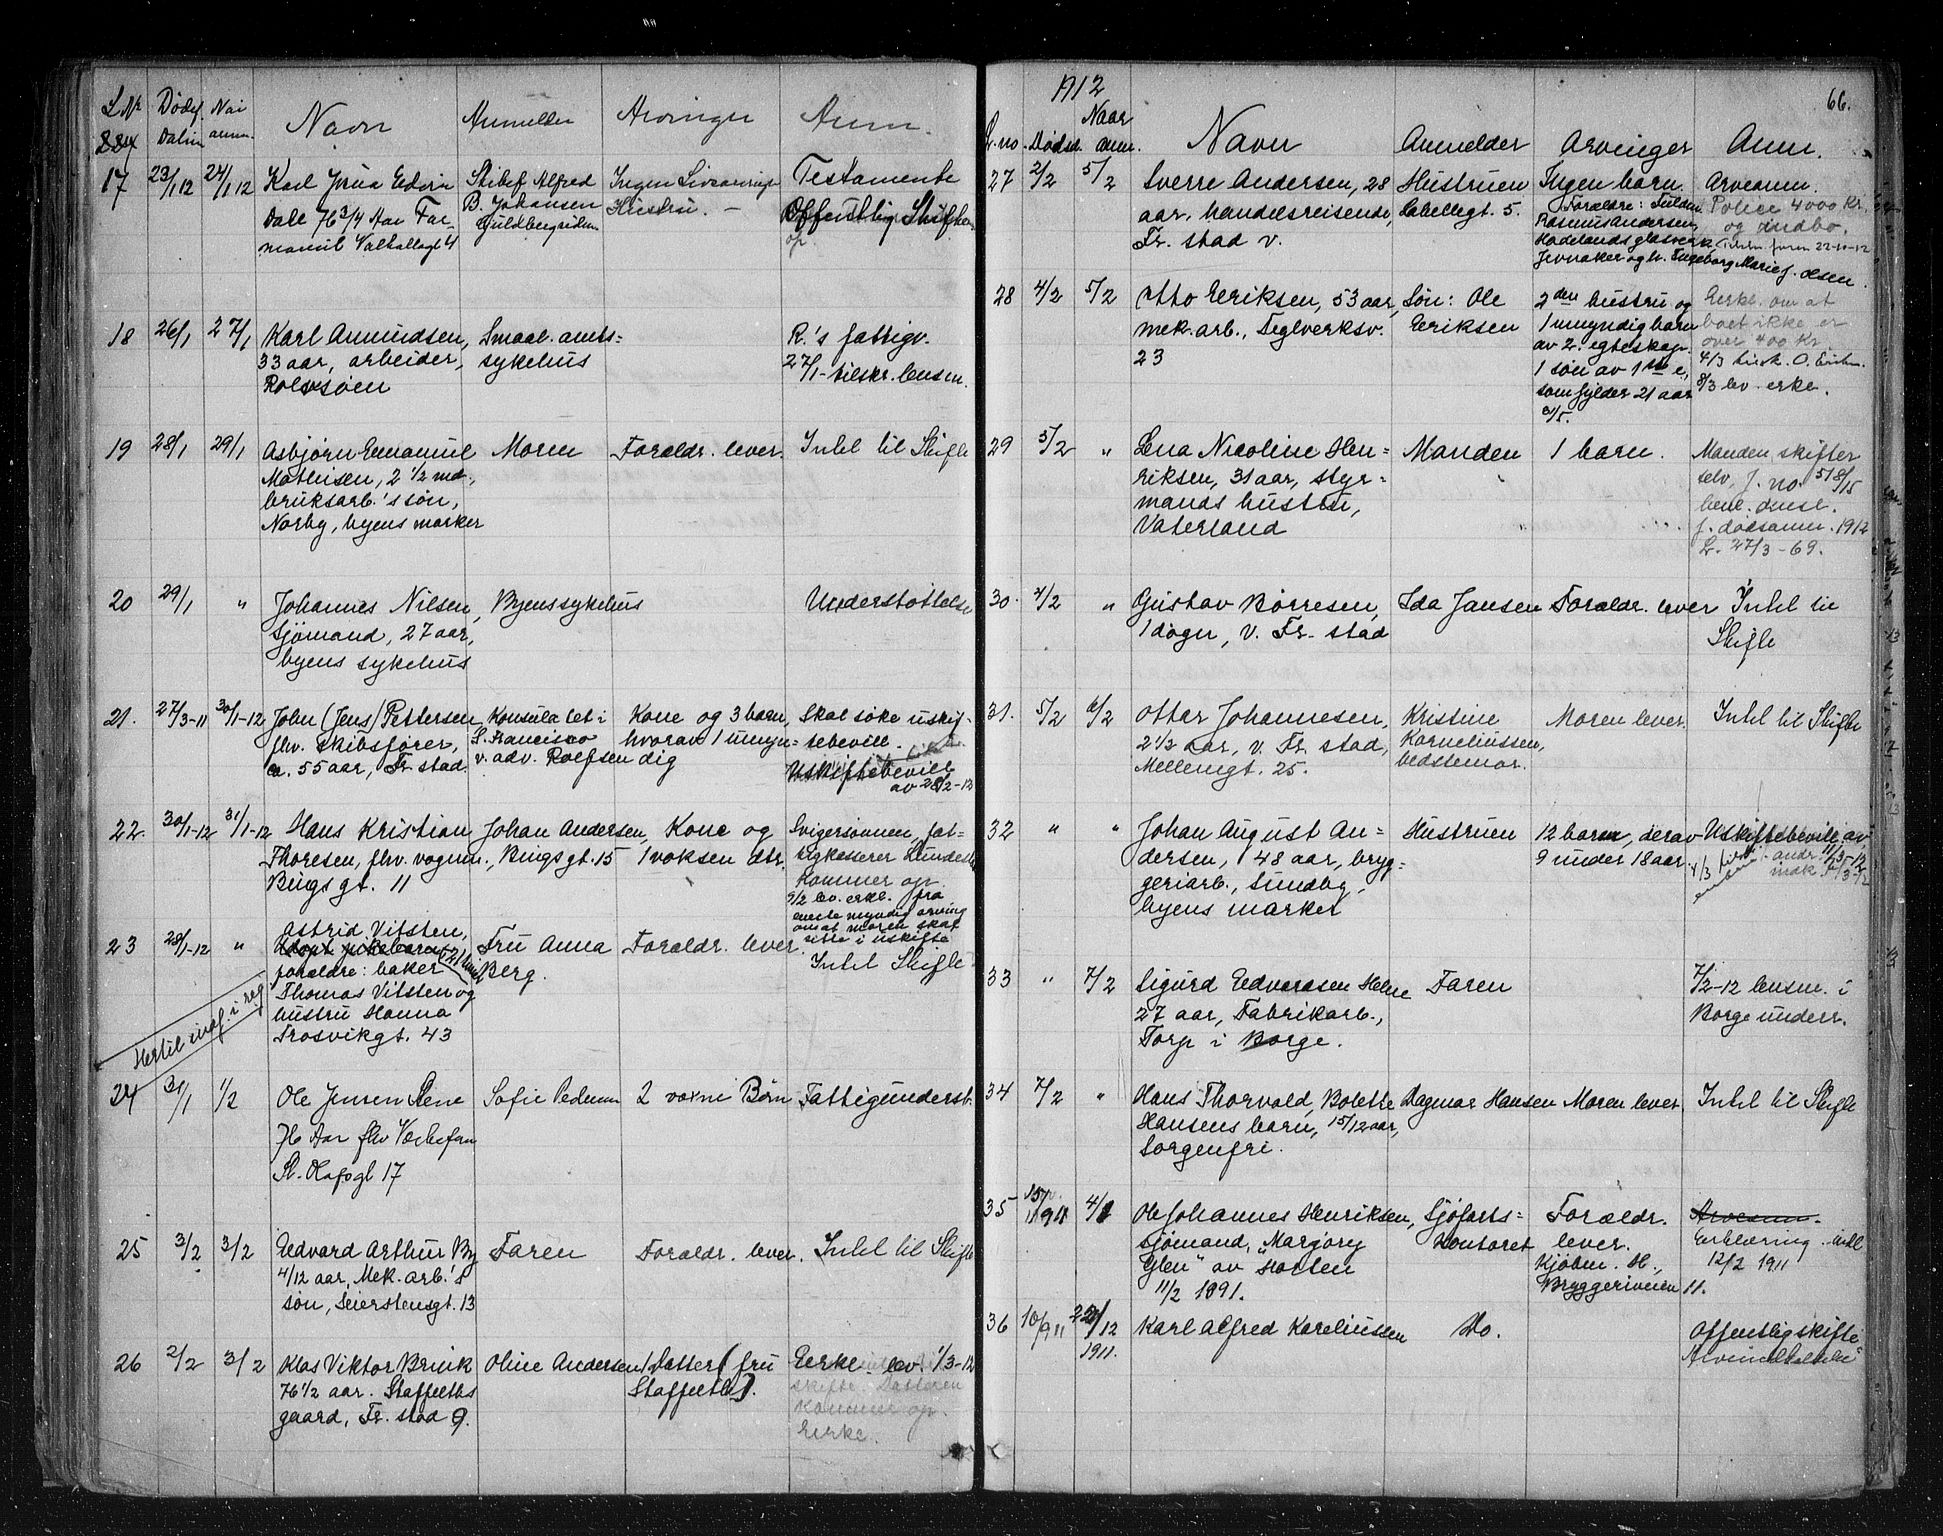 L. Nr
Døds
Datum
Naar
anm.
Navn
Anmelder
Arvinger
Anm.
17 23/1 12 24/1 12
Karl Edvin
Dahl 76 3/4 Aar
Valhallagt 4
Alfred
B. Johansen
Ingen
Hustru. —
Testamente
Offentlig Skifte
op.
18 26/1 27/1
Karl Amundsen,
33 aar, arbeider,
Rolvsøen
Smaal. amts=
sykehus
R.'s fattigv.
27/1 - tilskr. lensm.
19 28/1 29/1
Asbjørn Emanuel
Mathisen, 2 1/2 md.,
bruksarb.'s søn,
Norby, byens marker
Moren
Forældr. lever.
Intet til Skifte
20 29/1 "
Johannes Nilsen,
Sjømand, 27 aar,
byens sykehus
Byens sykehus
Understøttelse
21. 27/3-11 30/1-12
John (Jens) Pettersen
fhv. skibsfører,
ca. 55 aar, Fr. stad.
Konsulatet i
S. Francisco
v. adv. Rolfsen
Kone og 3 barn,
hvorav 1 umyn=
dig
Skal søke uskif-
tebevill.
Uskiftebevill
av 28/2-12
22. 30/1-12 31/1-12
Hans Kristian
Thoresen, fhv. vognm.,
Bings gt. 11
Johan Andersen,
Bingsgt. 15
Kone og
1 voksen dtr.
Svigersønnen, fat-
tigkasserer
kommer op.
9/2 lev. erkl. fra
eneste myndig arving
om at moren skal
sitte i uskifte
23 28/1-12 "
Astrid Vitsten,
forældre: baker
Thomas Vitsten og
hustru Hanna
Trosvikgt. 43
Fru Anna
Berg.
Forældr. lever.
Intet Skifte
Hertil indf. i reg
24 31/1 1/2
Ole Jensen Lene
76 Aar fhv
St. Olafsgt 17
Sofie Pedersen
2 voxne Børn
Fattigunderst.
25 3/2 3/2
Edvard Arthur By
4/12 aar, Mek. arb.'s
søn, Seierstensgt. 13
Faren
Forældr. lever.
Intet til Skifte
26 2/2 3/2
Klas Viktor Brink
76 1/2 aar. Staffeldts
gaard, Fr. stad 9.
Oline Andersen
1 Datter (fru
Staffeldt).
Erkl. lev. 1/3-12
skifte. Datteren
kommer op.
Erkl.
1912
66.
L. no. Dødsd.
Naar
anm.
Navn
Anmelder
Arvinger
Anm.
27 2/2 5/2
Sverre Andersen, 28
aar, handelsreisende,
Fr. stad v.
Hustruen
Cabellegt. 5.
Ingen barn.
Forældre:
Rasmus Andersen,
Hadelands glasverk,
Jevnaker og h. Ingeborg Marie f. Olsen
Arveanm.
Police 4000 Kr.
og indbo.
22-10-12
28 4/2 5/2
Otto Eriksen, 53 aar,
mek. arb., Teglverksv.
23
Søn: Ole
Eriksen
2den hustru og
1 umyndig barn
av 2. egteskap.
1 søn av 1ste e,
som fylder 21 aar
31/5.
Erkl. om at
boet ikke er
over 400 Kr.
4/3 tilsk. O. Eriksen
8/3 lev. erkl.
29 5/2 "
Lena Nicoline Hen=
riksen, 31 aar, styr=
mands hustru,
Vaterland
Manden
1 barn.
Manden skifter
selv, J. no. 518/15
f. dødsanm. 1912
L. 27/3 - 69.
30. 4/2 "
Gustav Børresen,
1 døgn, v. Fr. stad
Ida Jansen
Forældr. lever
Intet til
Skifte
31. 5/2 6/2
Ottar Johannesen,
2 1/3 aar, v. Fr. stad,
Mellemgt. 25.
Kristine
Korneliussen,
bedstemor.
Moren lever.
Intet til Skifte
32 " "
Johan August An=
dersen, 48 aar, bryg=
geriarb., Sundby,
byens marker
Hustruen
12 barn, derav
9 under 18 aar.
Uskiftebevill. av
33 " 7/2
Sigurd Edvardsen
27 aar, Fabrikarb.,
Torp i Borge.
Faren
7/2-12 lensm. i
Borge underr.
34 7/2 "
Hans Thorvald, Bolette
Hansens barn, 15/12 aar,
Sorgenfri.
Dagmar Hansen
Moren lever.
Intet til Skifte
35
Ole Johannes Henriksen,
sjømand, "Marjory
Glen" av Horten
11/2 1891.
Sjøfarts=
kontoret
Forældr.
lever.
Kjøbm. H.,
Bryggeriveien 11.
Arveanm.
Erklæring indl
12/2 1911
36 10/9 11
1911.
Karl Alfred Koreliussen
Do.
Offentlig skifte